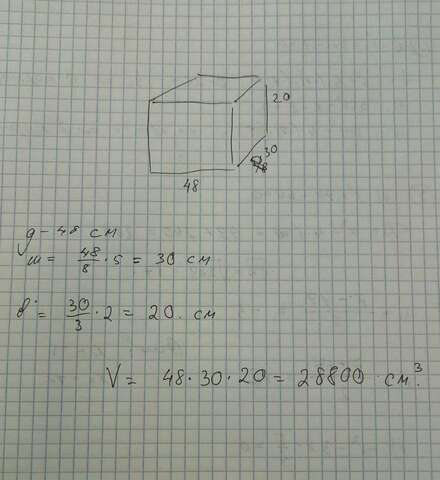 20
30
48
д - 48 см
ш = 48/8 · 5 = 30 см
в = 30/3 · 2 = 20 см
V = 48 · 30 · 20 = 28800 см³.